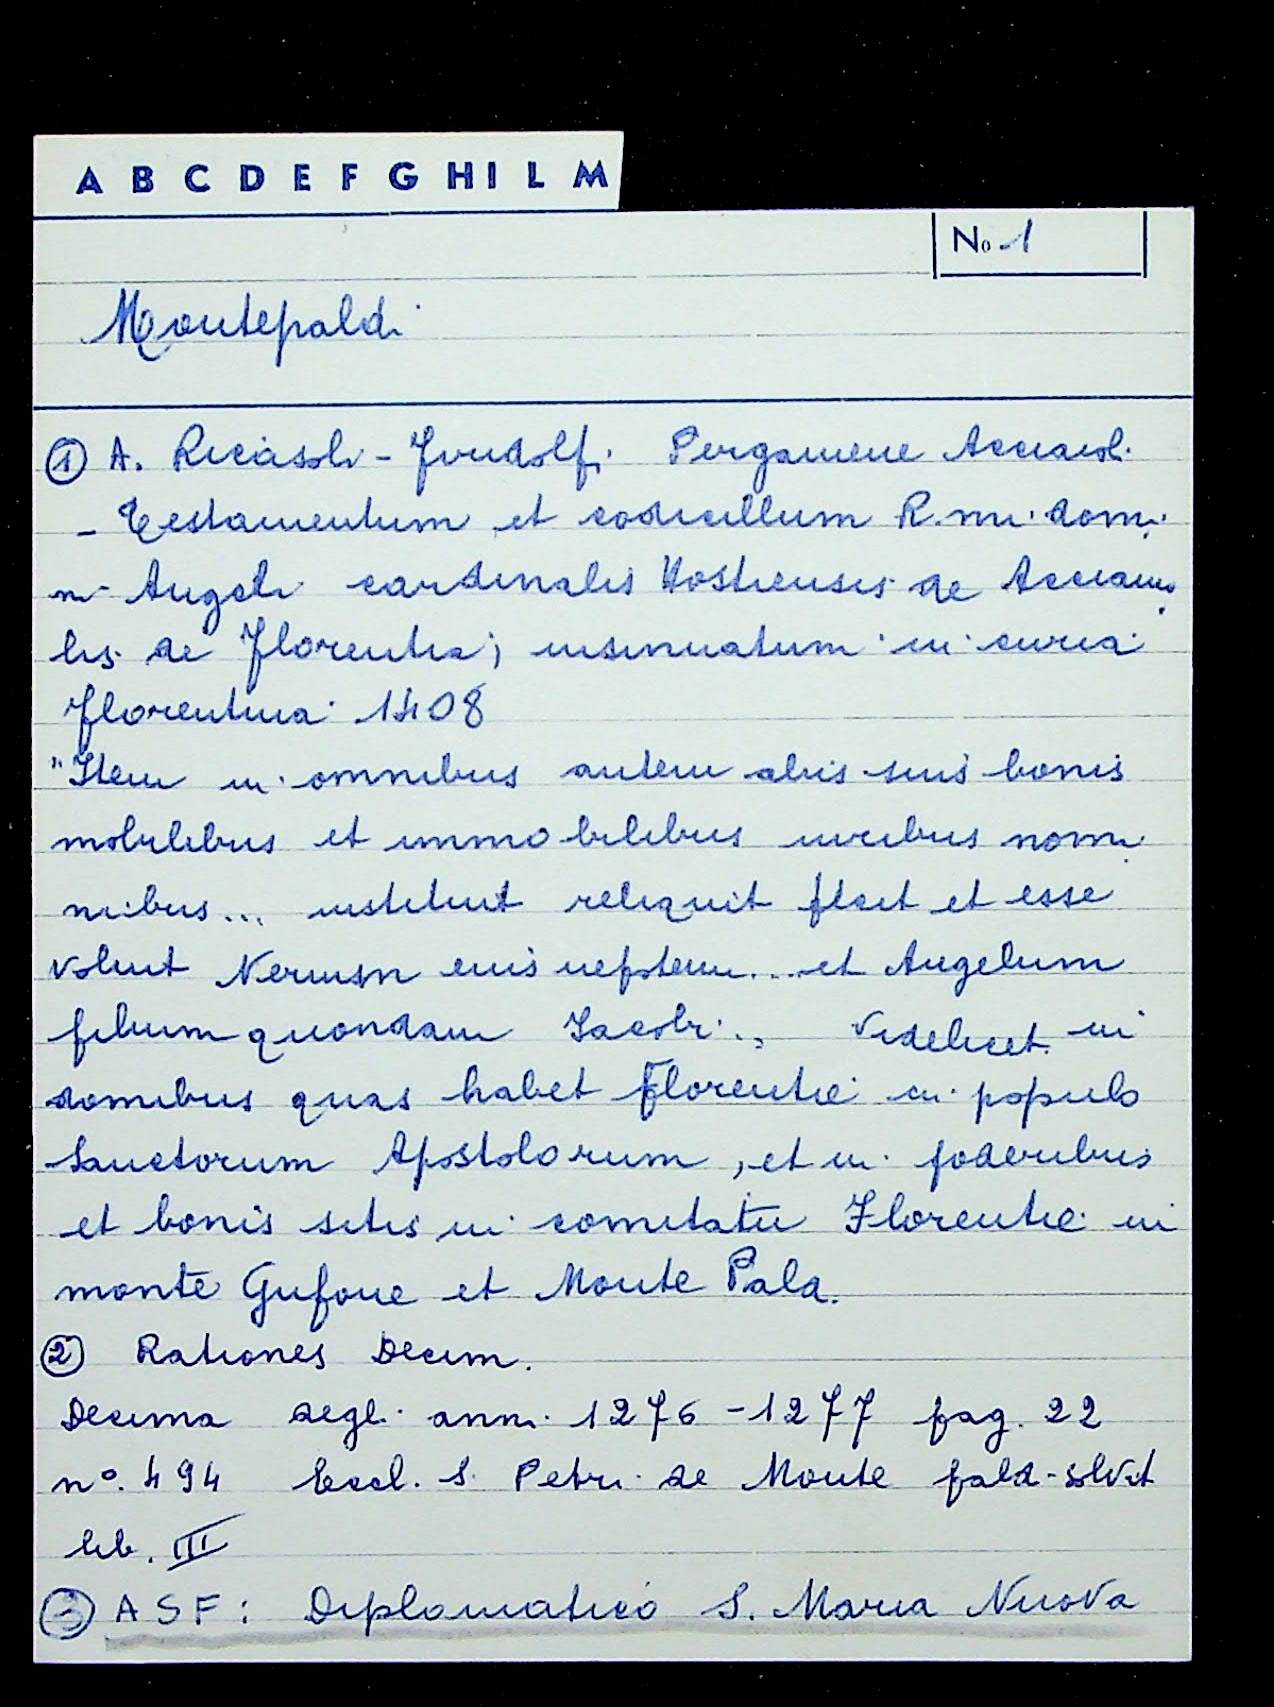 A B C D E F G H I L M
No 1
Montepaldi
① A. Ricasoli - Firidolfi Pergamene Acciaioli
- Testamentum et codicillum R.mi domi
ni Angeli cardinalis Hostiensis de Acciaiuo
lis de Florentia; insinuatum in curia
florentina 1408
"Item in omnibus autem aliis suis bonis
mobilibus et immobilibus iuribus nomi
nibus... instituit reliquit fecit et esse
voluit Nerium eius nepotem... et Angelum
filium quondam Iacobi... videlicet in
domibus quas habet Florentie in populo
Sanctorum Apostolorum, et in poderibus
et bonis sitis in comitatu Florentie in
monte Gufone et Monte Pald.
② Rationes Decim.
Decima degli anni 1276-1277 pag. 22
n°. 494 Eccl. S. Petri de Monte pald - solvit
lib. III
③ ASF: Diplomatico S. Maria Nuova